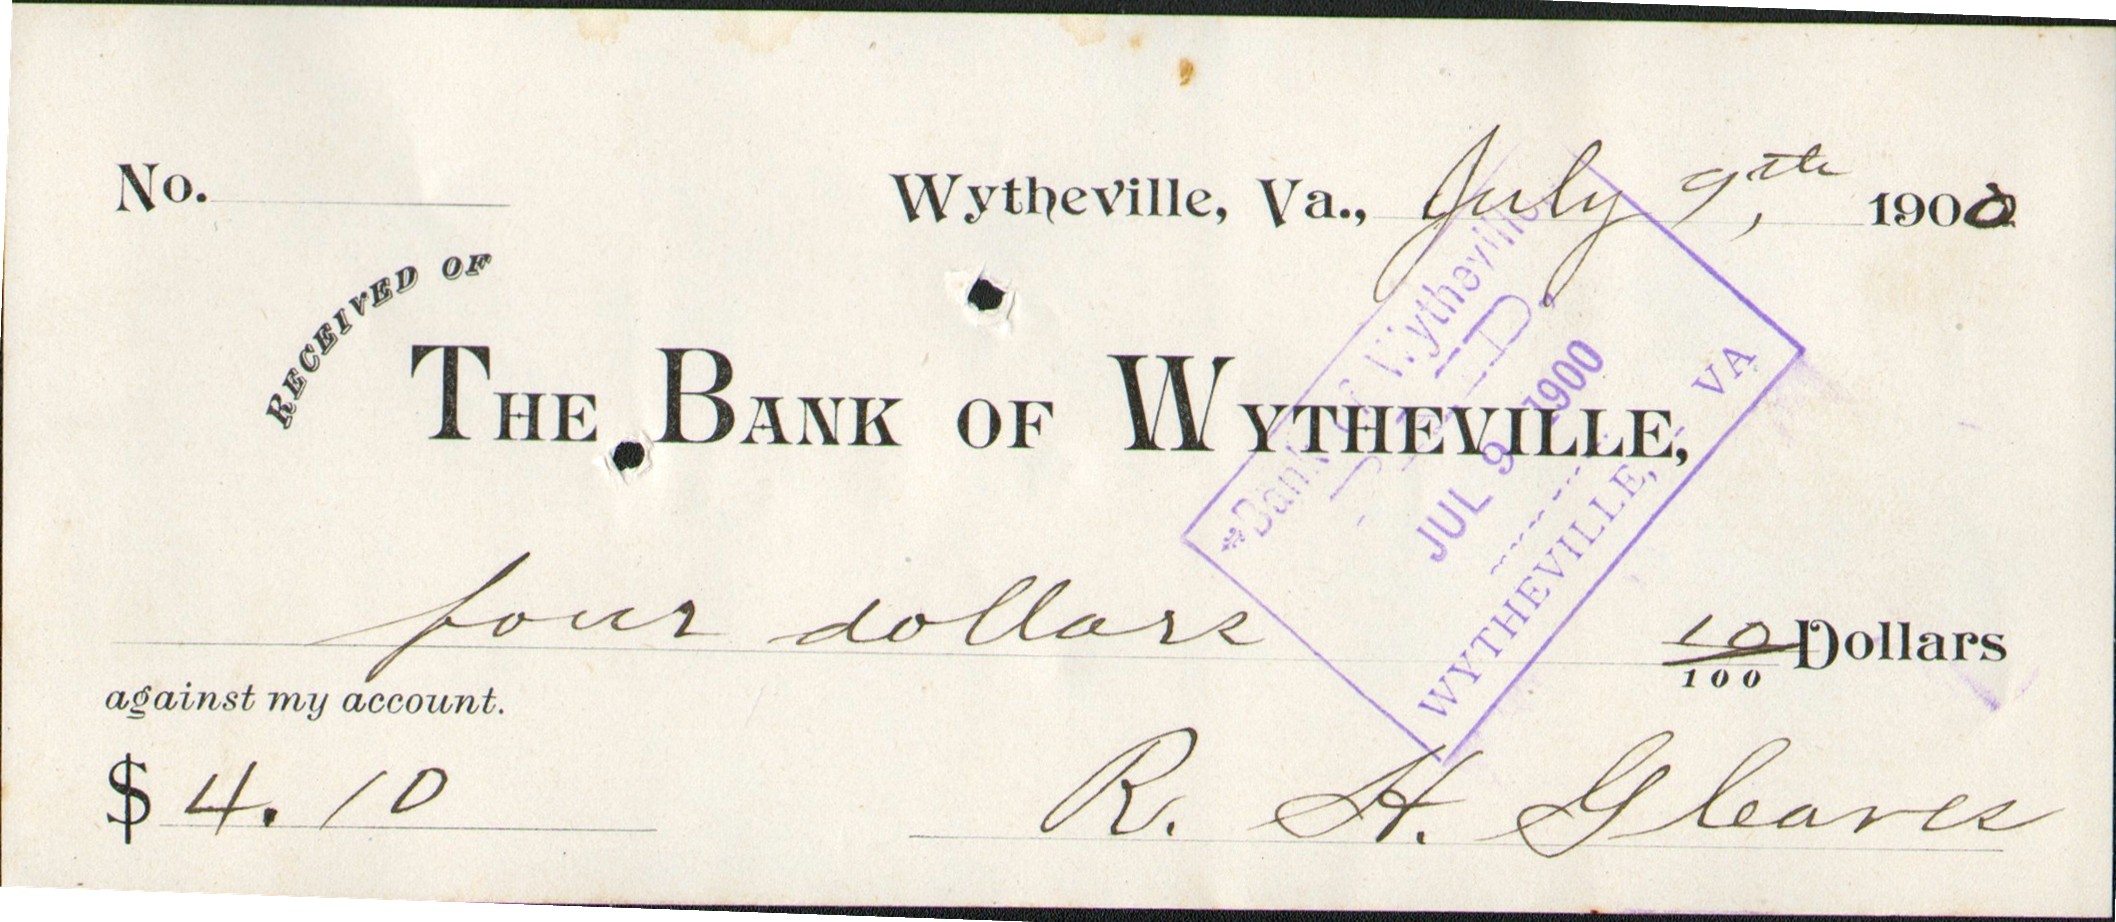 No.
Wytheville, Va., July 9th, 1900
RECEIVED OF
THE BANK OF WYTHEVILLE,
four dollars 10/100 Dollars
against my account.
$ 4.10
R. H. Gleaves
Bank of Wytheville
PAID,
JUL 9 1900
WYTHEVILLE, VA